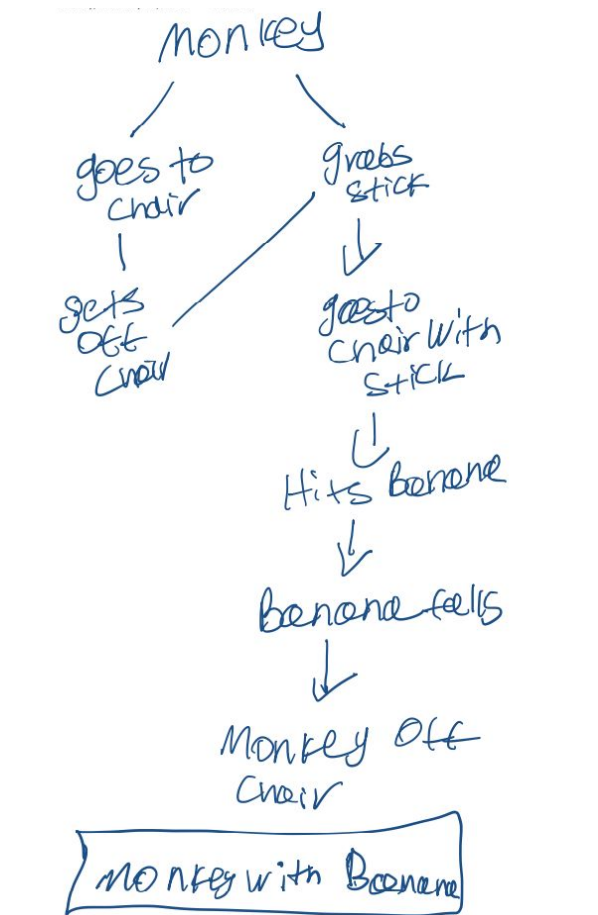 Monkey
goes to
chair
grabs
stick
gets
off
chair
goes to
chair with
stick
Hits Banana
Banana falls
Monkey off
chair
monkey with Banana